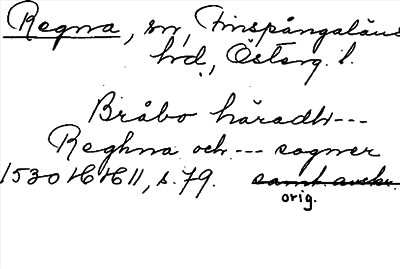 Regna, sn, Finspångaläns
hd., Österg. l.
Bråbo häradh ---
Reghna och --- sogner
1530 HH II, s. 79. samt avskr.
orig.